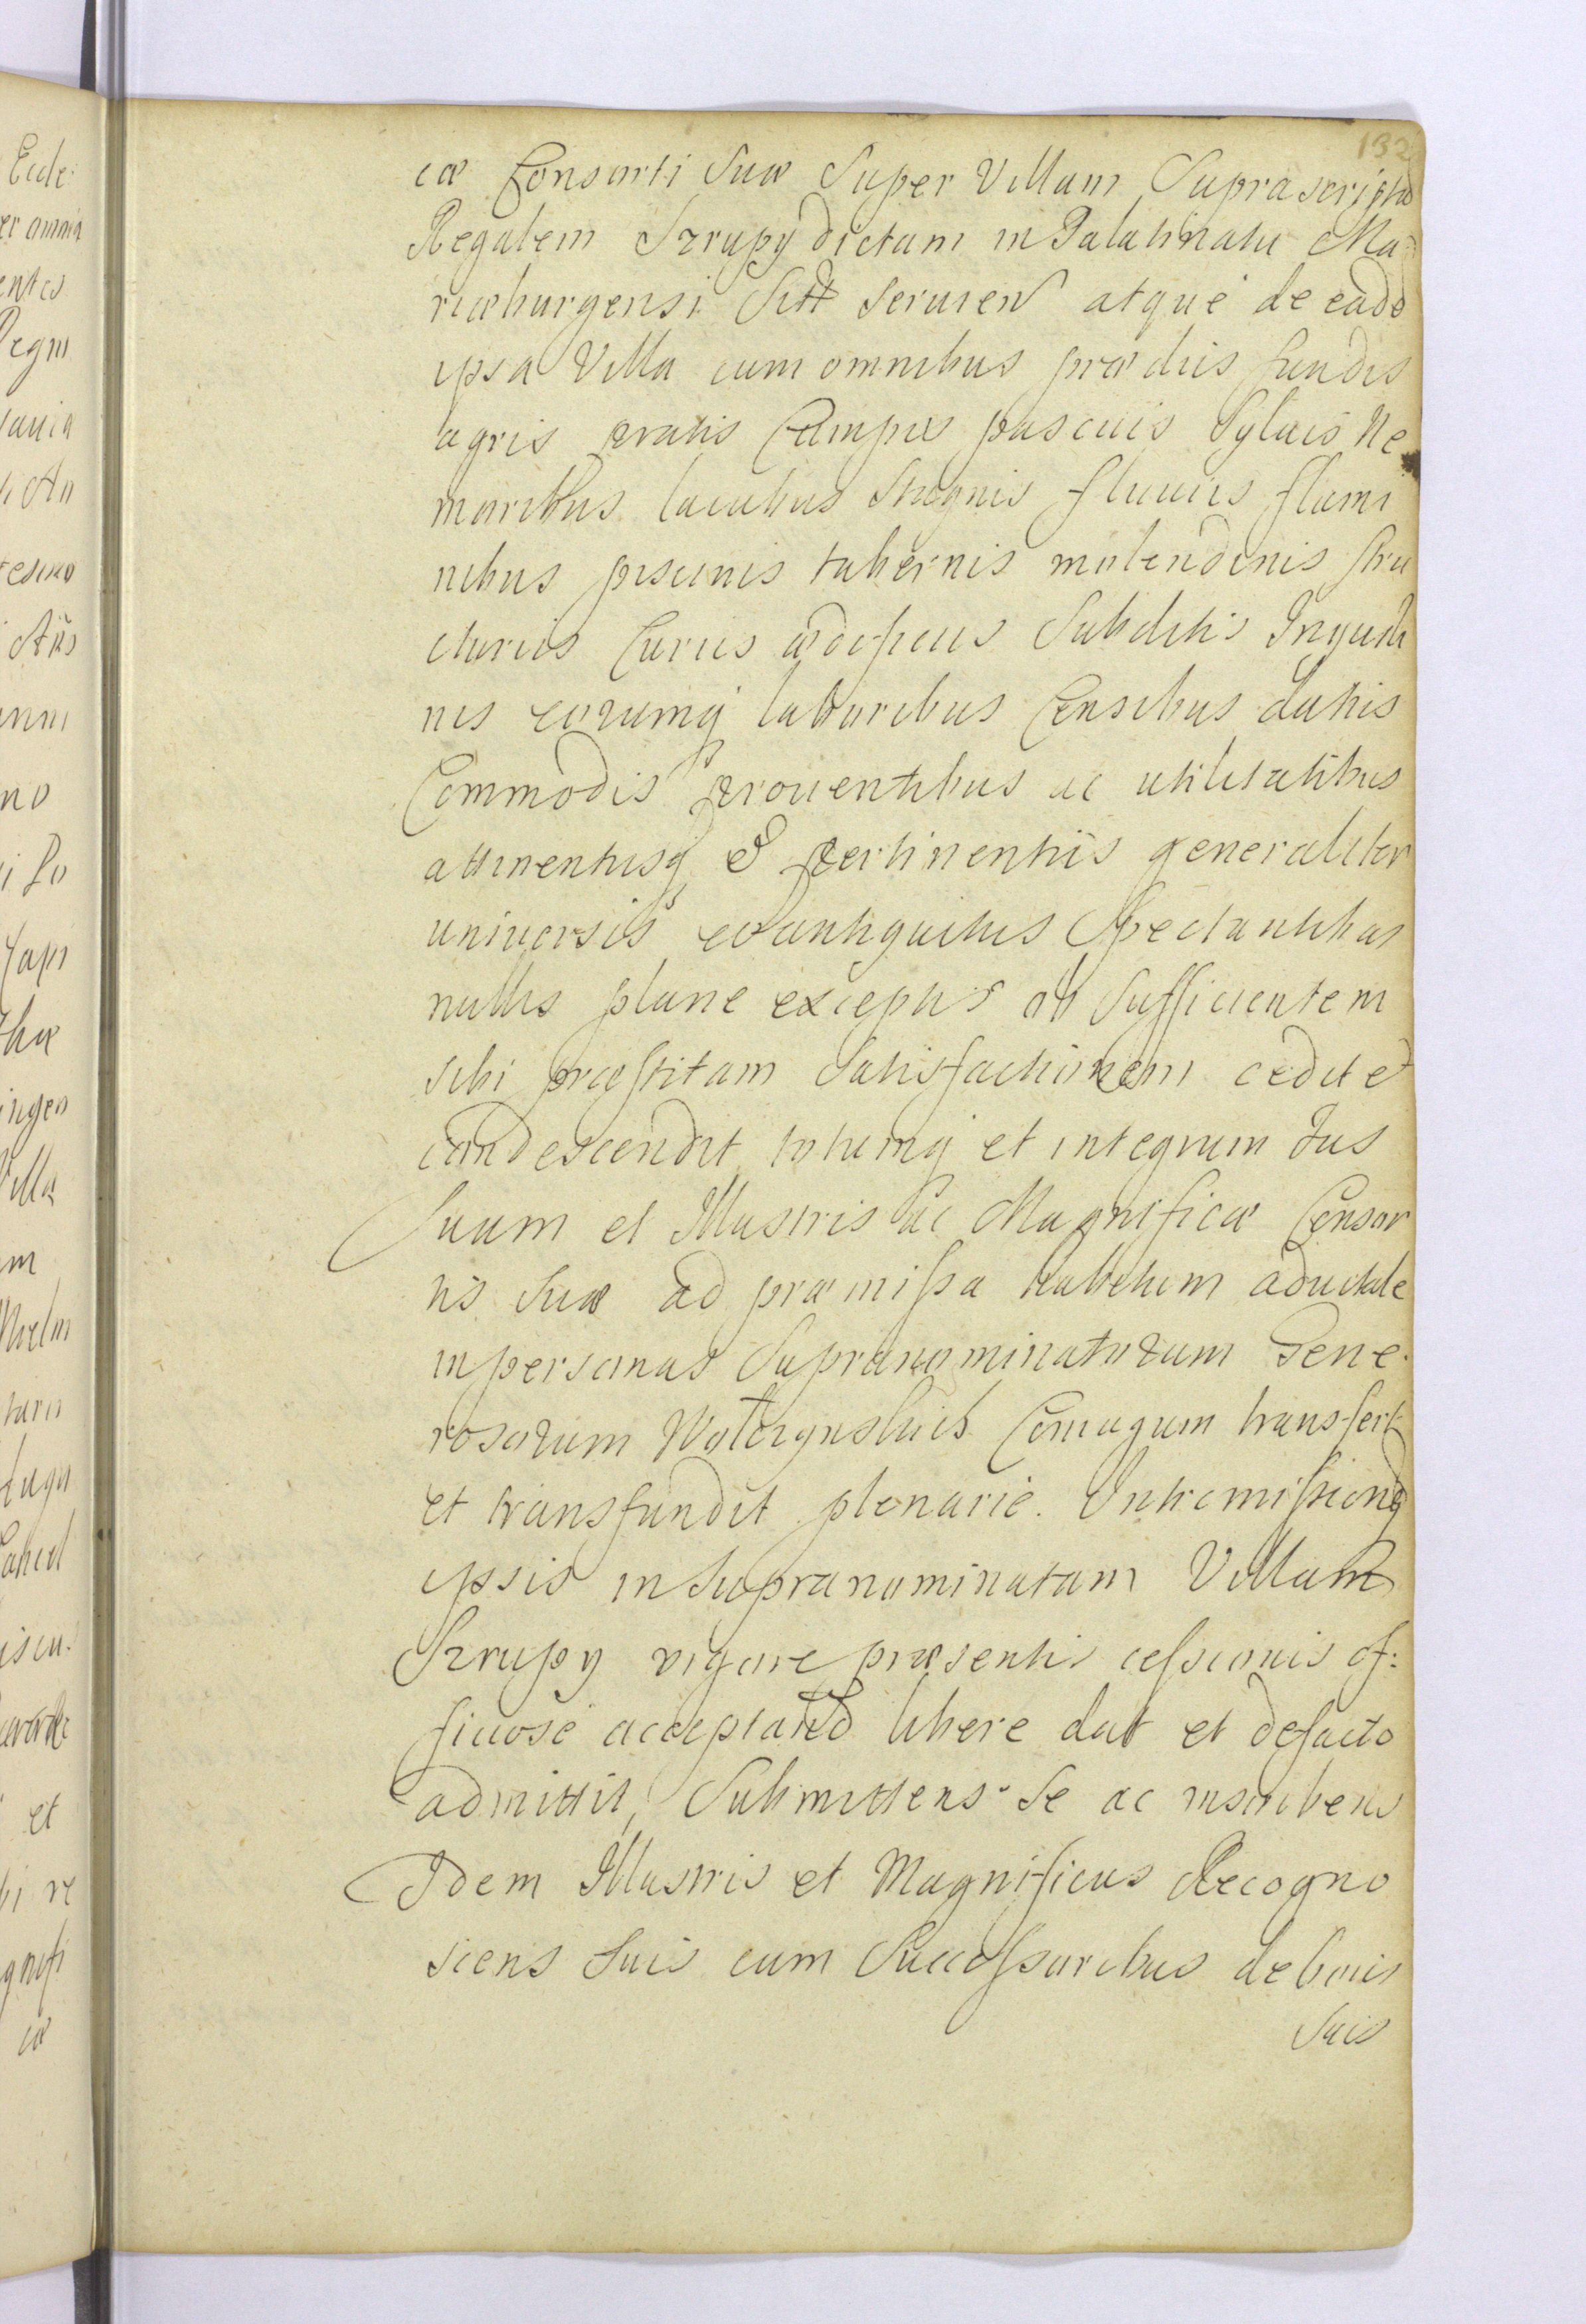 132
cæ Consorti Suæ Super Villam Suprascriptã
Regalem Szrupÿ dictam in Palatinatu Ma
riæburgensi Sitt seruien atque de eadẽ
ipsa Villa cum omnibus prædiis fundis
agris pratis Campis pascuis Sÿluis Ne
moribus lacubus Stagnis fluuiis flumi
nibus piscinis tabernis molendinis stru
cturis Curiis ædificiis Subditis Inquili
nis eorumq laboribus Censibus datiis
Commodis prouentibus ac utilitatibus
attinentiisq & pertinentiis generaliter
uniuersis eo antiquitus Spectantibus
nullis plane exceptis ob Sufficientem
sibi præstitam Satisfactionem cedit et
condescendit totumq et integrum Jus
Suum et Illustris ac Magnificæ Consor
tis Suæ ad præmissa habitum aduitale
in personas Supranominatorum Gene
rosorum Coniugum transfert
et transfundit plenarie. Intromissionẽ
ipsis in Supranominatam Villam
Szrupy vigore præsentis cessionis of:
ficiose acceptand libere dat et defacto
admittit, Submittens Se ac inscribens
Idem Illustris et Magnificus Recogno
sciens Suis cum Successoribus de bonis
Suis